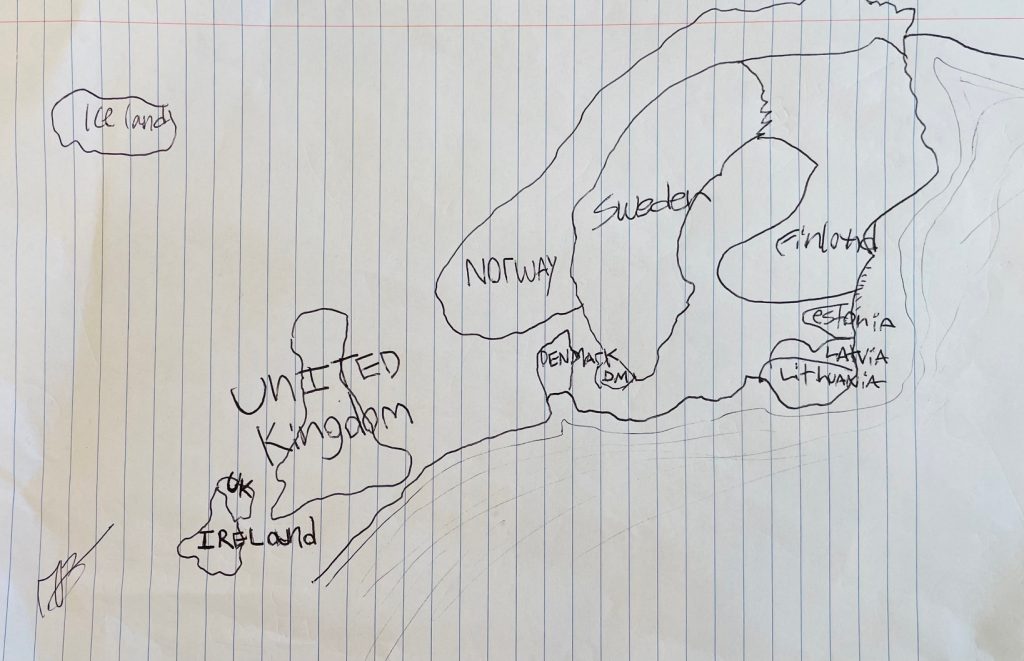 Iceland
Sweden
Finland
NOrWAY
estonia
DENMArK
LATViA
DM
LithuaniA
UnITED
Kingdom
UK
IRELand